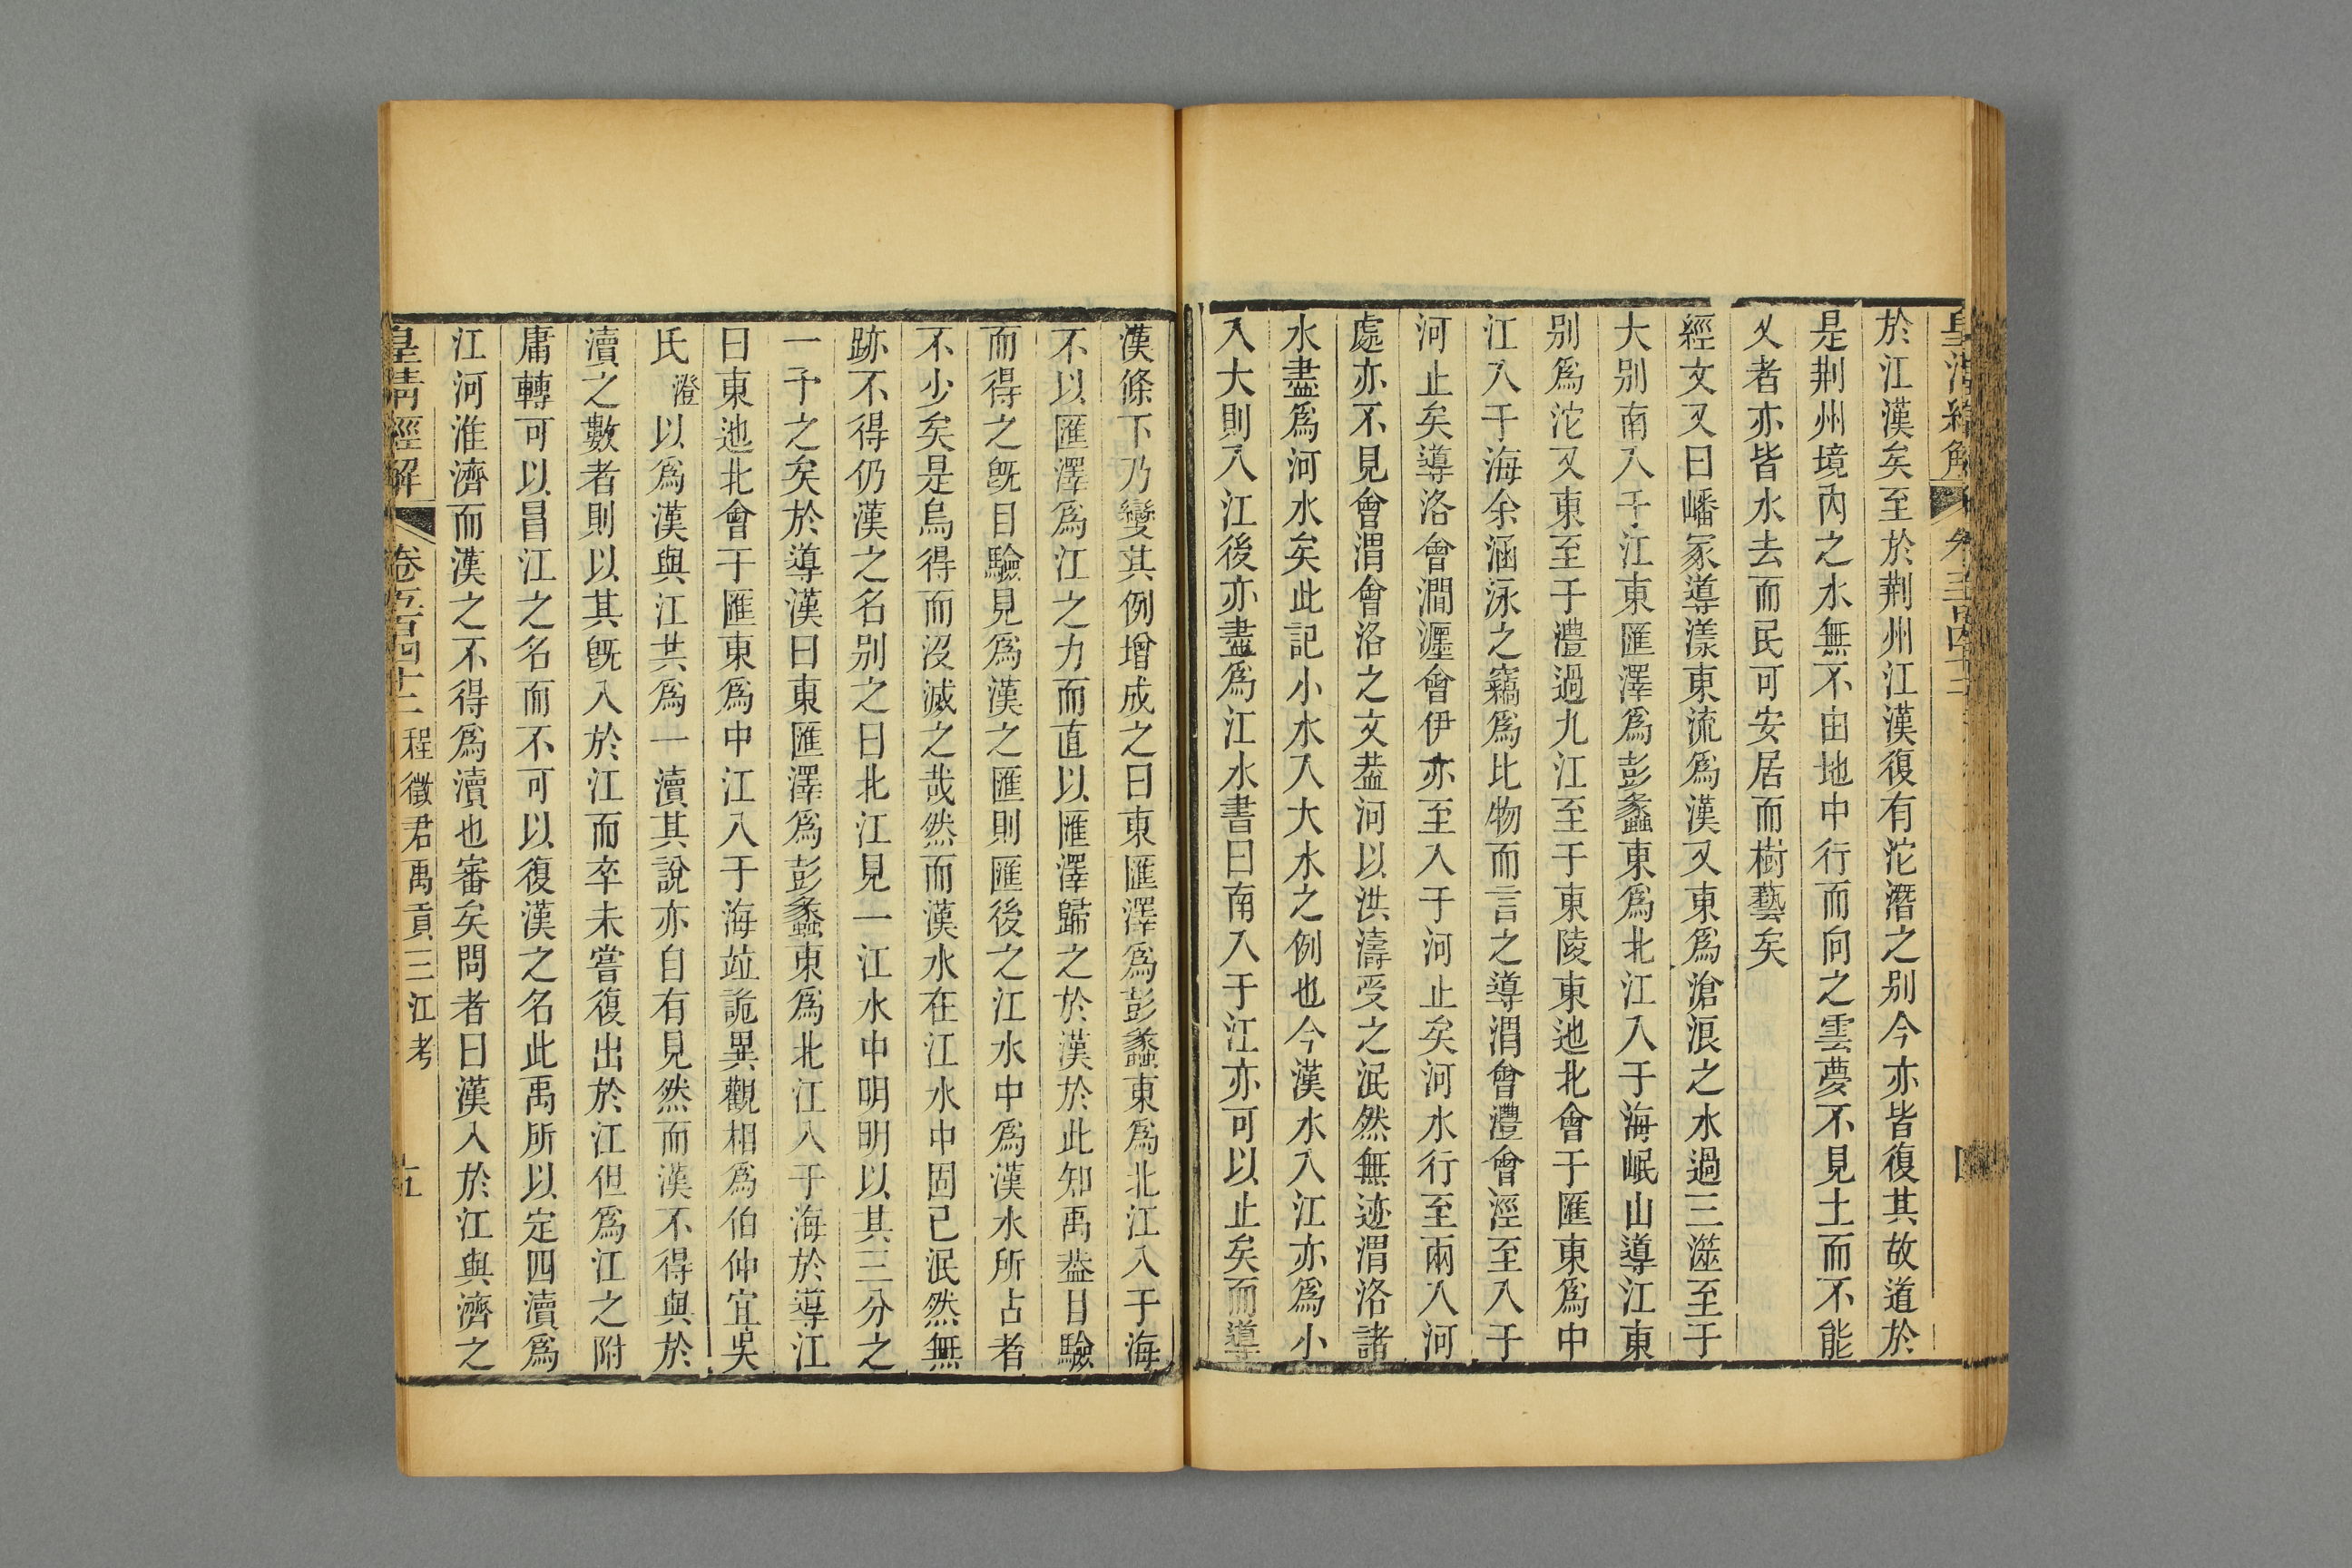 皇清經解
於江漢矣至於荆州江漢復有沱潛之别今亦皆復其故道於
是荆州境內之水無不由地中行而向之雲夢不見土而不能
乂者亦皆水去而民可安居而樹藝矣
經文又曰嶓冢導漾東流爲漢又東爲滄浪之水過三澨至于
大别南入于江東匯澤爲彭蠡東爲北江入于海岷山導江東
别爲沱又東至于澧過九江至于東陵東迆北會于匯東爲中
江入于海余涵泳之竊爲比物而言之導渭會澧會涇至入于
河止矣導洛會澗瀍會伊亦至入于河止矣河水行至兩入河
處亦不見會渭會洛之文葢河以洪濤受之泯然無迹渭洛諸
水盡爲河水矣此記小水入大水之例也今漢水入江亦爲小
入大則入江後亦盡爲江水書曰南入于江亦可以止矣而導
漢條下乃變其例增成之曰東匯澤爲彭蠡東爲北江入于海
不以匯澤爲江之力而直以匯澤歸之於漢於此知禹葢目驗
而得之旣目驗見爲漢之匯則匯後之江水中爲漢水所占者
不少矣是烏得而沒滅之哉然而漢水在江水中固已泯然無
跡不得仍漢之名别之曰北江見一江水中明明以其三分之
一予之矣於導漢曰東匯澤爲彭蠡東爲北江入于海於導江
曰東迆北會于匯東爲中江入于海竝詭異觀相爲伯仲宜吳
氏澄以爲漢與江共爲一瀆其說亦自有見然而漢不得與於
瀆之數者則以其旣入於江而卒未嘗復出於江但爲江之附
庸轉可以昌江之名而不可以復漢之名此禹所以定四瀆爲
江河淮濟而漢之不得爲瀆也審矣問者曰漢入於江與濟之
皇清經解 卷五百四十二 程徵君禹貢三江考 五